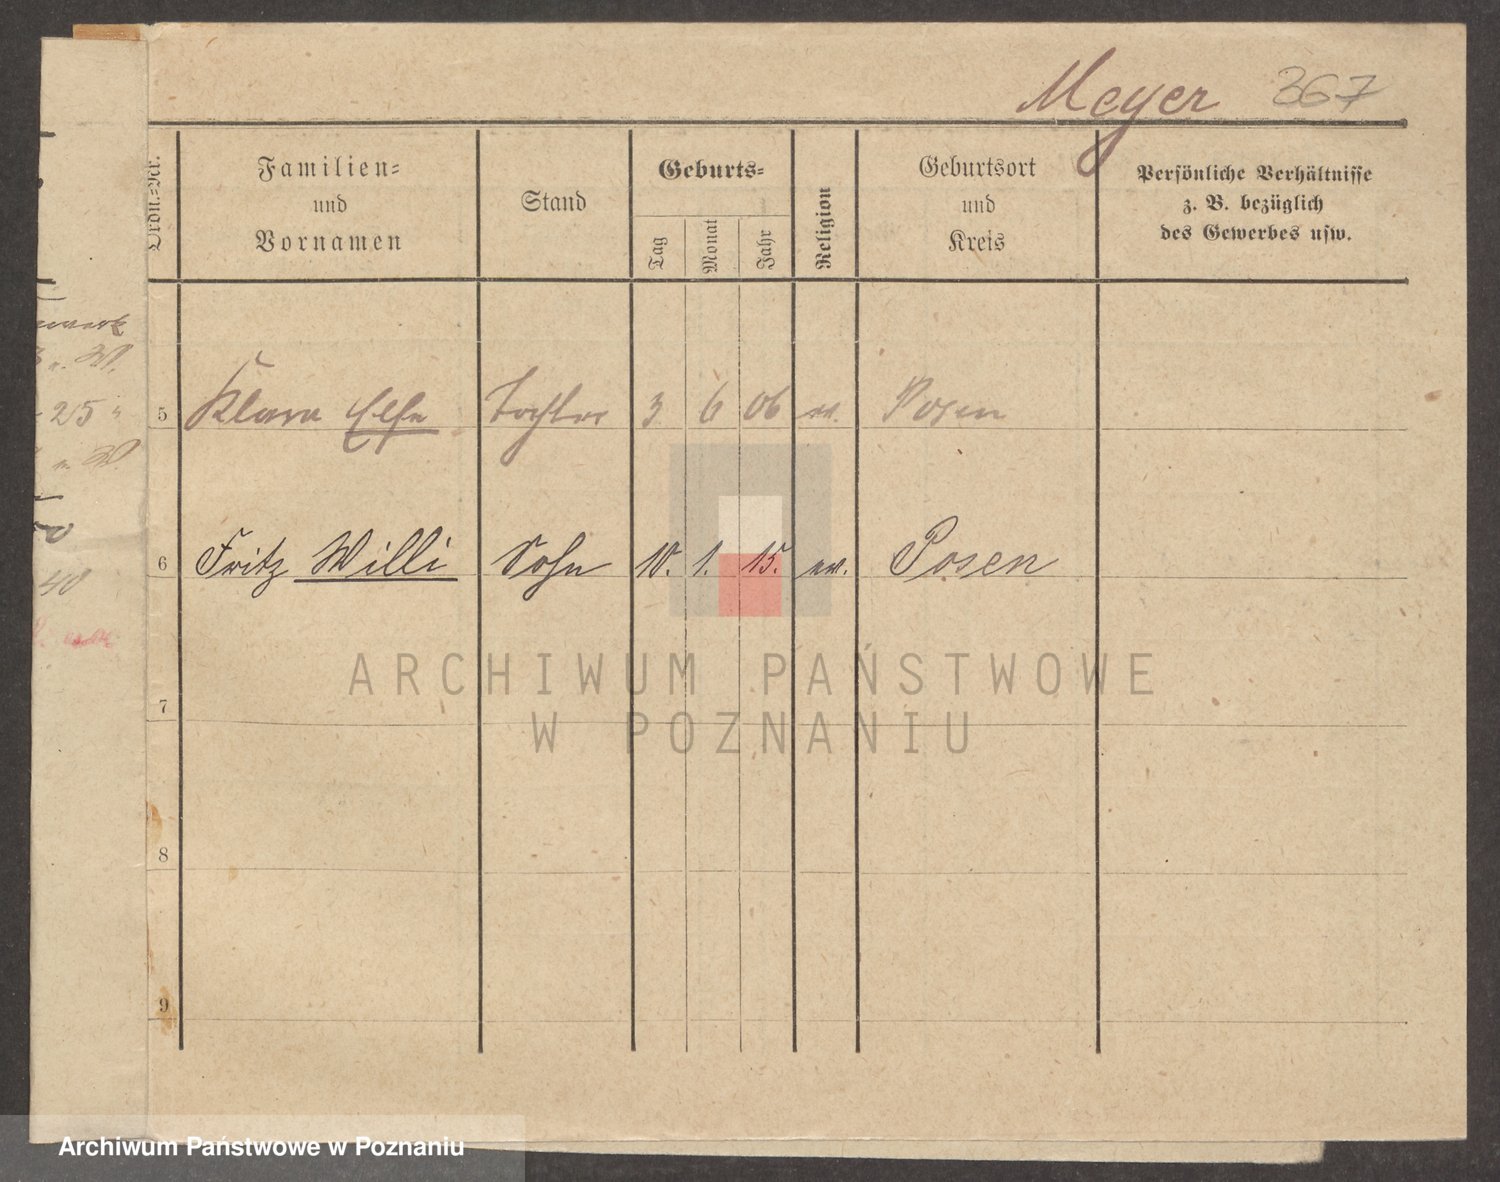 Meyer 367
Ordn.-Nr.
Familien-
und
Vornamen
Stand
Geburts-
Tag
Monat
Jahr
Religion
Geburtsort
und
Kreis
Persönliche Verhältnisse
z. B. bezüglich
des Gewerbes usw.
5 Klara Else Tochter 3 6 06 ev. Posen
6 Fritz Willi Sohn 10. 1. 15. ev. Posen
7
8
9
25
40
ARCHIWUM PAŃSTWOWE
W POZNANIU
Archiwum Państwowe w Poznaniu